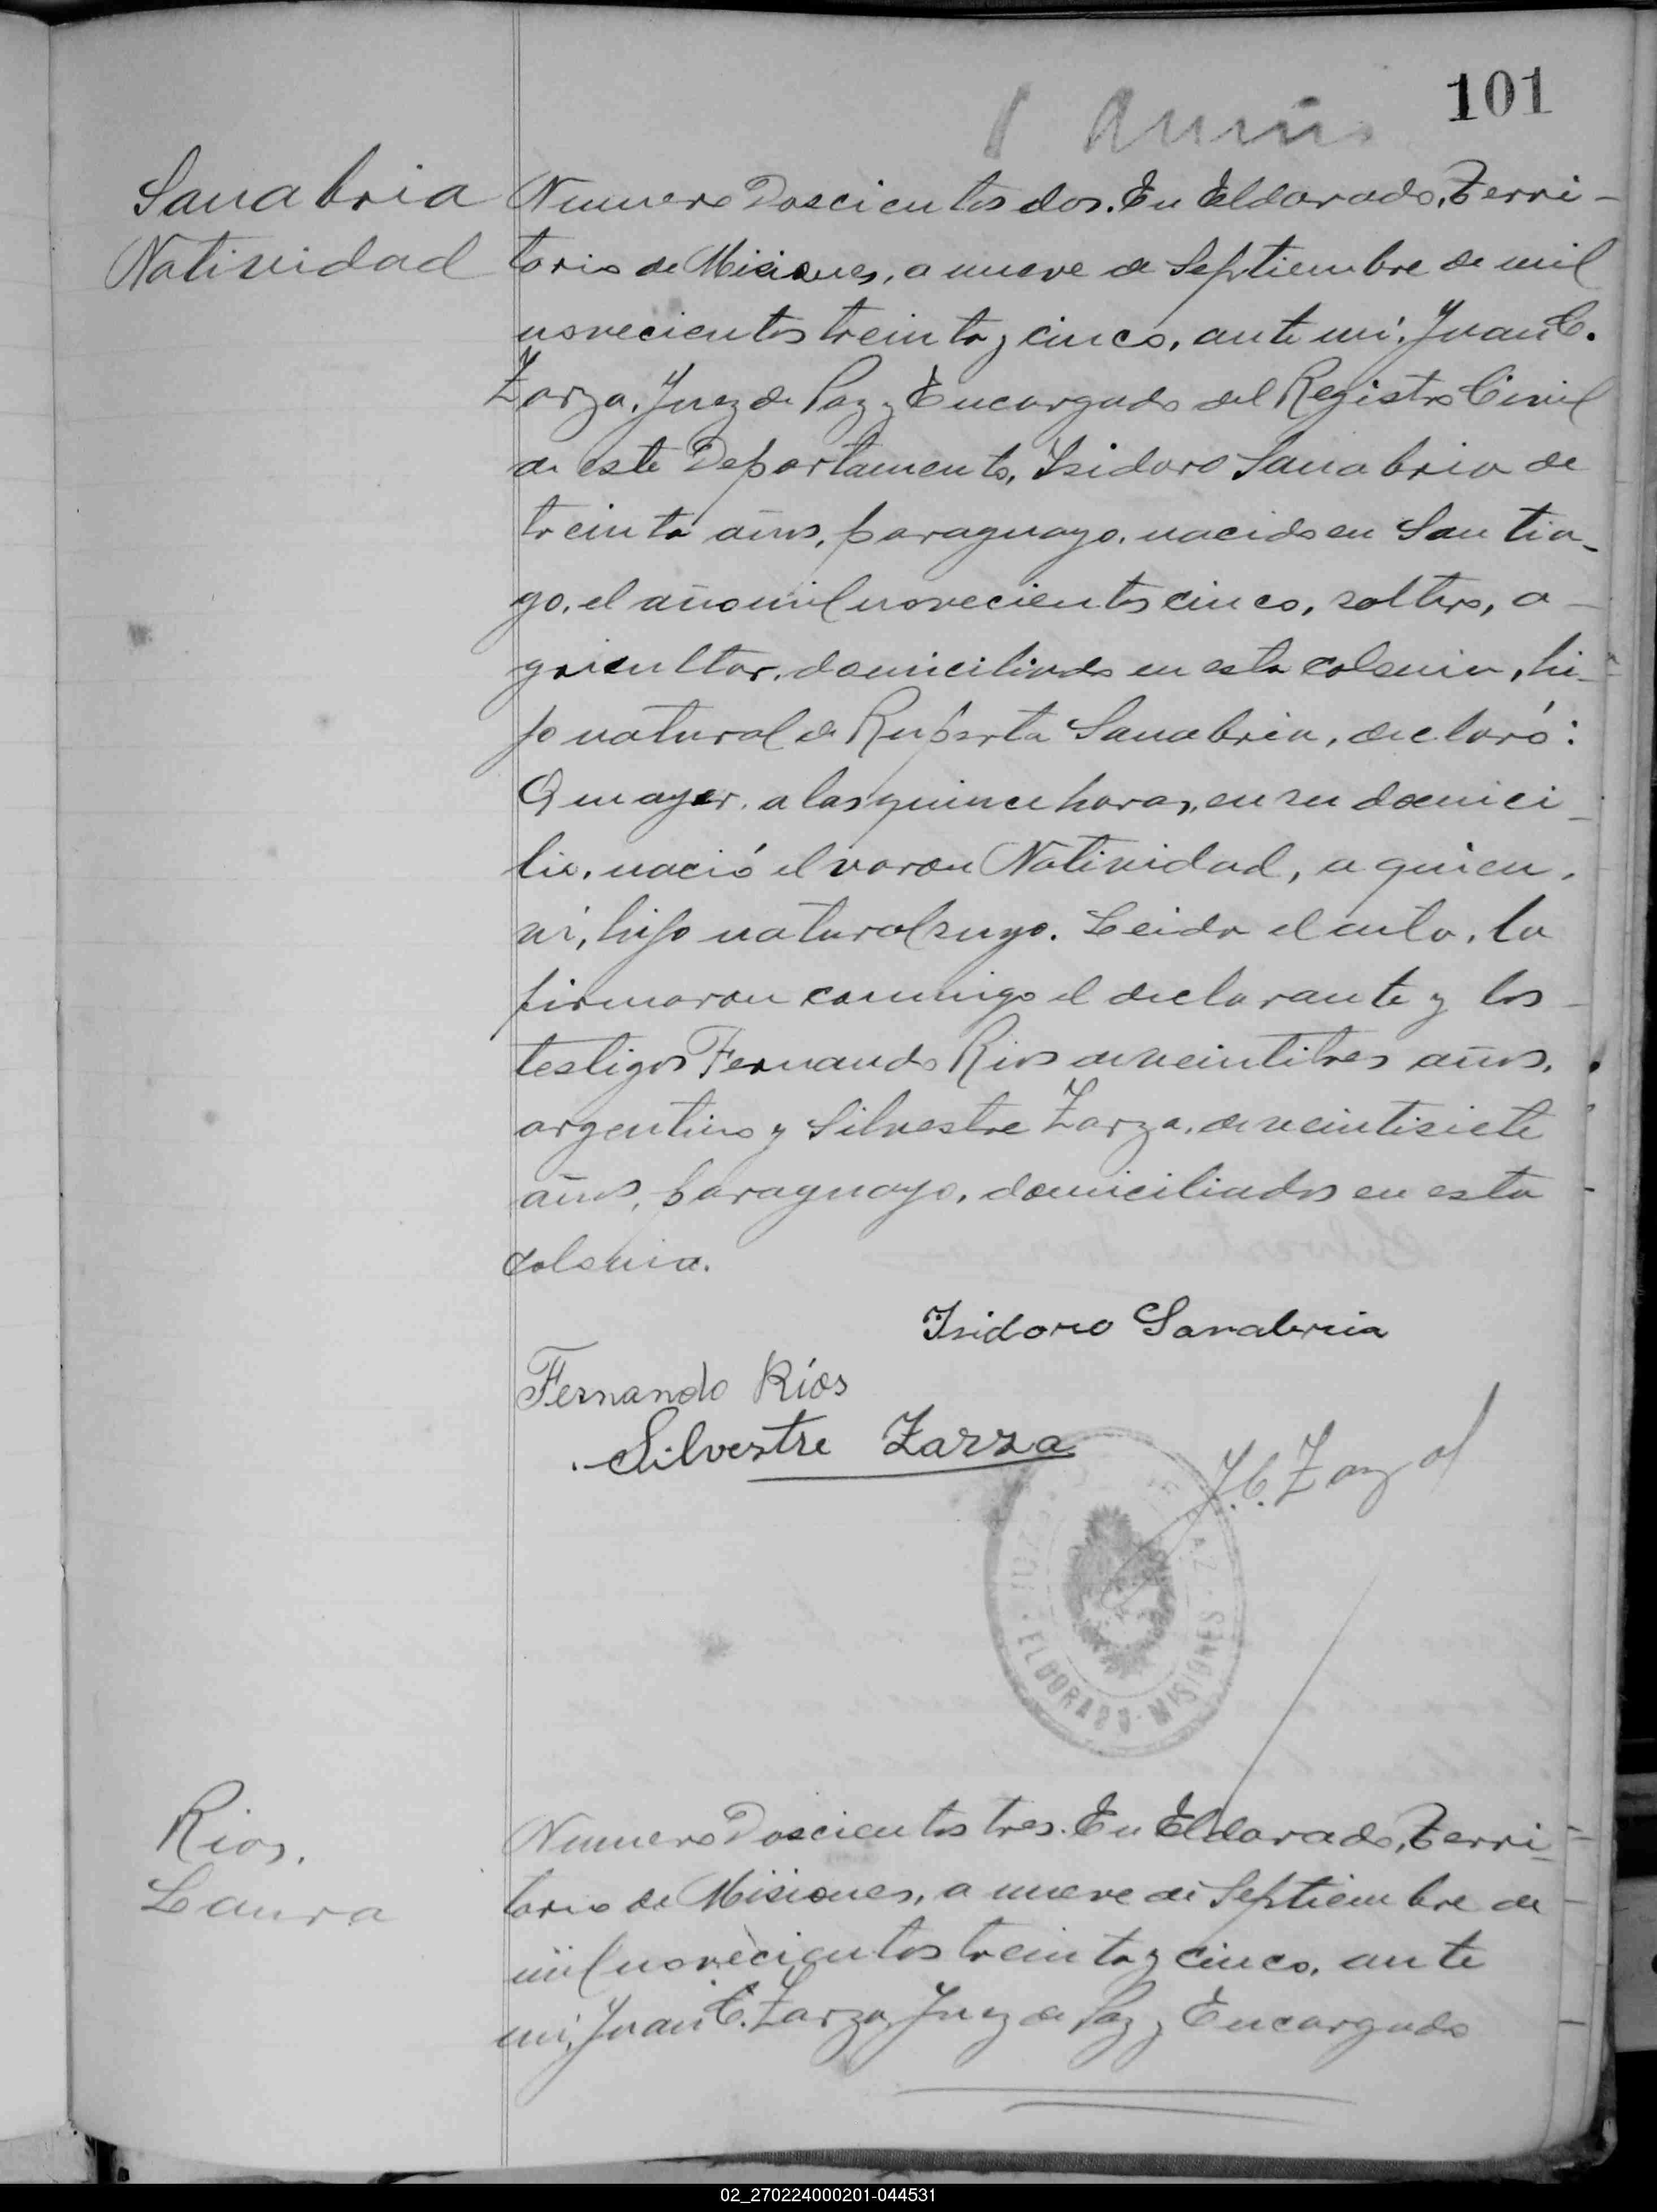 101
Sanabria
Natividad
Numero Doscientos dos. En Eldorado, Terri-
torio de Misiones, a nueve de Septiembre de mil
novecientos treinta y cinco, ante mi, Juan C.
Zarza, Juez de Paz y Encargado del Registro Civil
de este Departamento, Isidoro Sanabria de
treinta años, paraguayo, nacido en Santia-
go, el año mil novecientos cinco, soltero, a-
gricultor, domiciliado en esta colonia, hi-
jo natural de Ruperta Sanabria, declaró:
Q en ayer, a las quince horas, en su domici-
lio, nació el varon Natividad, a quien,
vi, hijo natural suyo. Leida el acta, la
firmaron conmigo el declarante y los
testigos Fernando Rios de veintitres años,
argentino y Silvestre Zarza, de veintisiete
años, paraguayo, domiciliados en esta
colonia.
Isidoro Sanabria
Fernando Ríos
Silvestre Zarza
J. C. Zarza
ELDORADO - MISIONES
Rios,
Laura
Numero Doscientos tres. En Eldorado, Terri-
torio de Misiones, a nueve de Septiembre de
mil novecientos treinta y cinco, ante
mi, Juan C. Zarza, Juez de Paz y Encargado
02_270224000201-044531